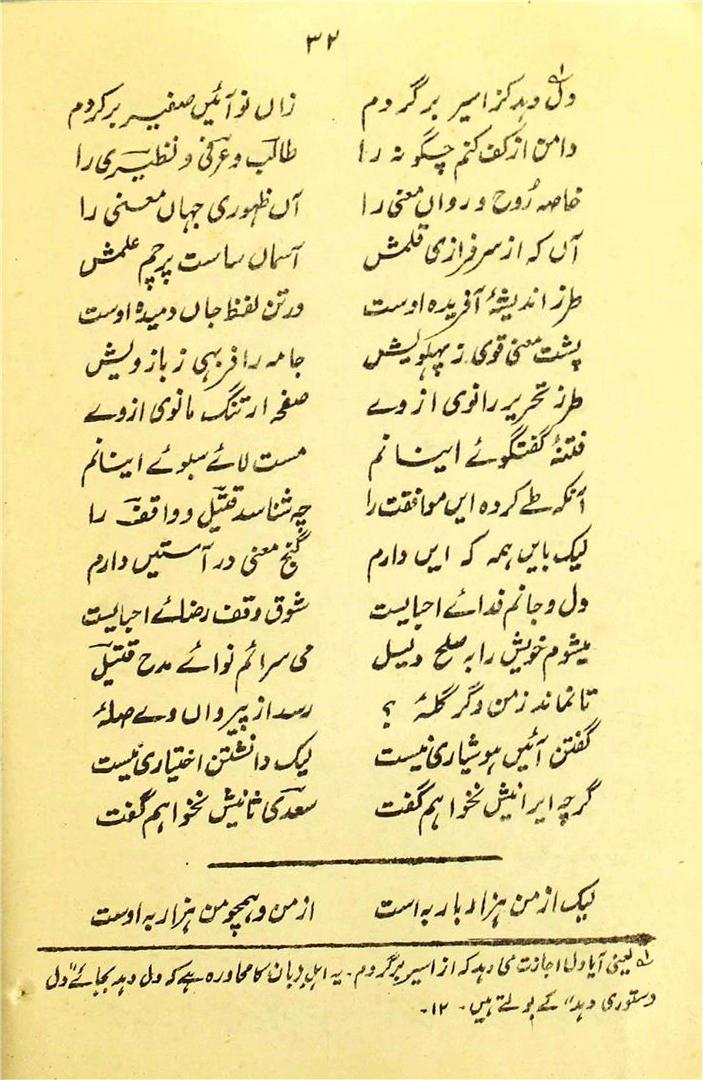 ۳۲
دل دہد کز اسیر برگردم زاں نو آئیں صفیر برگردم
دامن از کف کنم چگونہ را طالب و عرفی و نظیری را
خاصہ رُوح و روان معنی را آں ظہوری جہان معنی را
آں کہ از سرفرازی قلمش آسماں ساست پرچم علمش
طرز اندیشۂ آفریدہ اوست در تن لفظ جاں دمیدہ اوست
پشت معنی قوی ز پہلویش خامہ را فربہی ز بازویش
طرز تحریر را نوی ازوے صفحہ ارتنگ مانوی ازوے
فتنۂ گفتگوئے اینانم مست لائے سبوئے اینانم
آنکہ طے کردہ ایں مواقفت را چہ شناسد قتیل و واقف را
لیک بایں ہمہ کہ ایں دارم گنج معنی در آستیں دارم
دل و جانم فدائے احبابست شوق وقف رضائے احبابست
میشوم خویش را بہ صلح دلیل می سرائم نوائے مدح قتیل
تا نماند ز من دگر گلۂ ؟ رسد از پیروان وے صلۂ
گفتن آئیں ہوشیاری نیست لیک دانشتن اختیاری نیست
گرچہ ایرانیش نخواہم گفت سعدی ثانیش نخواہم گفت
لیک از من ہزار بار بہ است از من و ہمچو من ہزار بہ اوست
۱ یعنی آیا دل اجازت می دہد کہ از اسیر برگردم۔ یہ اہل زبان کا محاورہ ہے کہ دل دہد بجائے "دل
دستوری دہد" کے بولتے ہیں۔ ۱۲۔